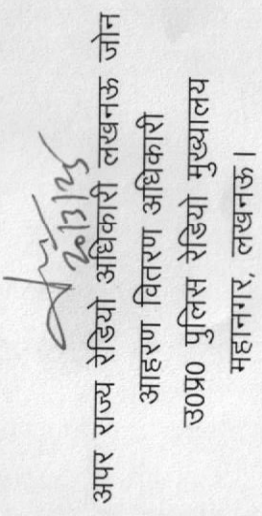 20/3/25
अपर राज्य रेडियो अधिकारी लखनऊ जोन
आहरण वितरण अधिकारी
उ0प्र0 पुलिस रेडियो मुख्यालय
महानगर, लखनऊ।